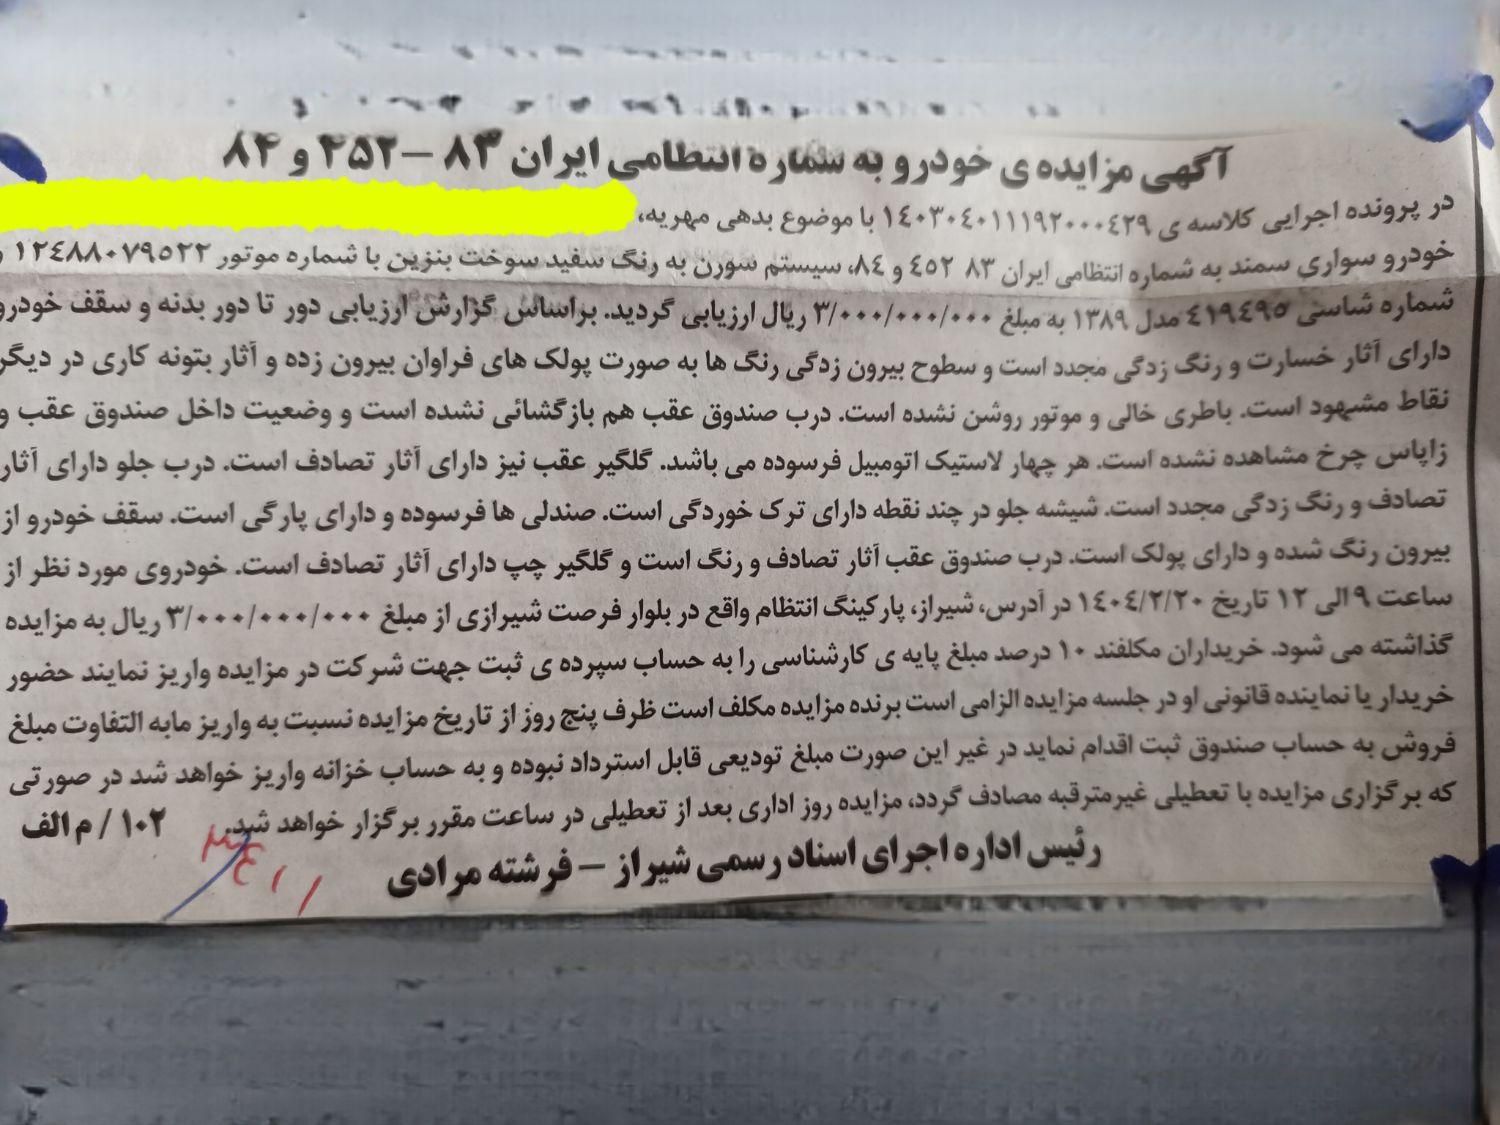 آگهی مزایده ی خودرو به شماره انتظامی ایران ۸۳ – ۴۵۲ و ۸۴
در پرونده اجرایی کلاسه ی ۱۴۰۳۰۴۰۱۱۱۹۲۰۰۰۴۲۹ با موضوع بدهی مهریه،
خودرو سواری سمند به شماره انتظامی ایران ۸۳ ۴۵۲ و ۸۴، سیستم سورن به رنگ سفید سوخت بنزین با شماره موتور ۱۲۴۸۸۰۷۹۵۲۲ و
شماره شاسی ۴۱۹۴۹۵ مدل ۱۳۸۹ به مبلغ ۳/۰۰۰/۰۰۰/۰۰۰ ریال ارزیابی گردید. براساس گزارش ارزیابی دور تا دور بدنه و سقف خودرو
دارای آثار خسارت و رنگ زدگی مجدد است و سطوح بیرون زدگی رنگ ها به صورت پولک های فراوان بیرون زده و آثار بتونه کاری در دیگر
نقاط مشهود است. باطری خالی و موتور روشن نشده است. درب صندوق عقب هم بازگشائی نشده است و وضعیت داخل صندوق عقب و
زاپاس چرخ مشاهده نشده است. هر چهار لاستیک اتومبیل فرسوده می باشد. گلگیر عقب نیز دارای آثار تصادف است. درب جلو دارای آثار
تصادف و رنگ زدگی مجدد است. شیشه جلو در چند نقطه دارای ترک خوردگی است. صندلی ها فرسوده و دارای پارگی است. سقف خودرو از
بیرون رنگ شده و دارای پولک است. درب صندوق عقب آثار تصادف و رنگ است و گلگیر چپ دارای آثار تصادف است. خودروی مورد نظر از
ساعت ۹ الی ۱۲ تاریخ ۱۴۰۴/۲/۲۰ در آدرس، شیراز، پارکینگ انتظام واقع در بلوار فرصت شیرازی از مبلغ ۳/۰۰۰/۰۰۰/۰۰۰ ریال به مزایده
گذاشته می شود. خریداران مکلفند ۱۰ درصد مبلغ پایه ی کارشناسی را به حساب سپرده ی ثبت جهت شرکت در مزایده واریز نمایند حضور
خریدار یا نماینده قانونی او در جلسه مزایده الزامی است برنده مزایده مکلف است ظرف پنج روز از تاریخ مزایده نسبت به واریز مابه التفاوت مبلغ
فروش به حساب صندوق ثبت اقدام نماید در غیر این صورت مبلغ تودیعی قابل استرداد نبوده و به حساب خزانه واریز خواهد شد در صورتی
که برگزاری مزایده با تعطیلی غیرمترقبه مصادف گردد، مزایده روز اداری بعد از تعطیلی در ساعت مقرر برگزار خواهد شد.
۱۰۲ / م الف
رئیس اداره اجرای اسناد رسمی شیراز – فرشته مرادی